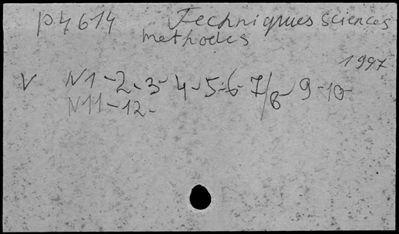 P4614 Techniques sciences
methodes
1997
V N1-2-3-4-5-6-7/8-9-10-
N11-12-